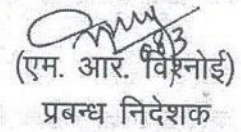 (एम. आर. विश्नोई)
प्रबन्ध निदेशक